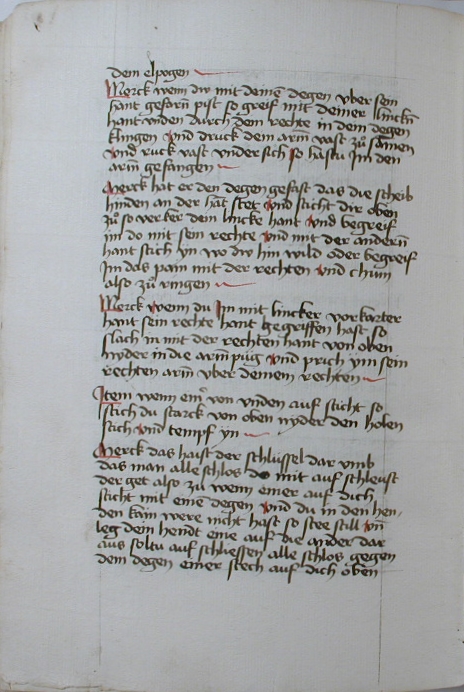 dem elpogen
Merck wenn dw mit deinē degen vber sein
hant gefarñ pist so greif mit deiner linckñ
hant vnden durch dem rechte in dem degen
klingen vnd druck dem arm vast zů samen
vnd ruck vast vndersich so hastu im den
arm gefangen
Merck hat er den degen gefast das die scheib
hinden an der hāt stet vnd sticht dir oben
zů so verker dein lincke hant vnd begreif
im do mit sein rechte vnd mit der anderñ
hant stich yn wo dw hin wild oder begreif
Im das pain mit der rechten vnd chum
also zů ringen
Merck wenn du Im mit lincker vorkarter
hant sein rechte hant begriffen hast so
slach in mit der rechten hant von oben
nyder in die arm pug vnd prich ym sein
rechten arm vber deinem rechten
Item wenn einer von vnden auf sticht so
stich du starck von oben nyder den holen
stich vnd tempf yn
Merck das haist der schlüssel dar vmb
das man alle schlos do mit auf schleust
der get also zu wenn einer auf dich
sticht mit einē degen vnd du in den hen
den kain were nicht hast so stee still vñ
leg dein hendt eine auf die ander dar
aus soltu auf schliessen alle schlos gegen
dem degen einer stech auf dich oben